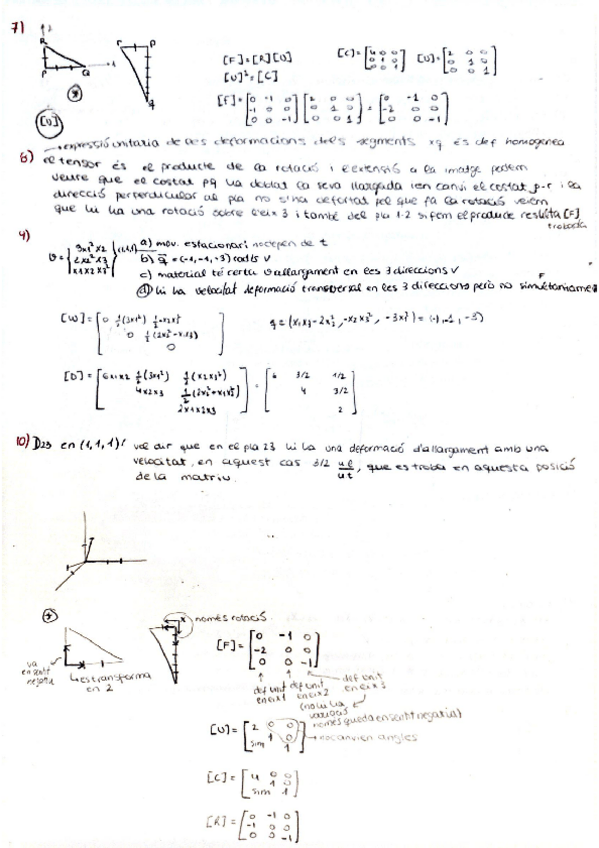 7)
R
P
Q
1
r
p
q
[F] = [R][U]
[U]² = [C]
[C] = [4 0 0
0 1 0
0 0 1]
[U] = [2 0 0
0 1 0
0 0 1]
[F] = [0 -1 0
-1 0 0
0 0 -1] [2 0 0
0 1 0
0 0 1] = [0 -1 0
-2 0 0
0 0 -1]
[U]
expressió unitaria de les deformacions dels segments xq és def homogenea
8) el tensor és el producte de la rotació i l'extensió a la imatge podem
veure que el costat pq ha doblat la seva llargada i en canvi el costat p-r i la
direcció perpendicular al pla no s'ha deformat pel que fa la rotació veiem
que hi ha una rotació sobre l'eix 3 i també del pla 1-2 si fem el producte resulta [F]
trobada
9)
v = {3x1² x2
2x2² x3
x1 x2 x3²} (1,1,1)
a) mov. estacionari no depen de t
b) q = (-1, -1, -3) rad/s v
c) material té certa v allargament en les 3 direccions v
d) hi ha velocitat deformació transversal en les 3 direccions però no simultaniament
F
[W] = [0 ½(3x1²) ½-x2x3²
0 ½(2x2²-x1x3²)
0]
q = (x1x3-2x2², -x2x3², -3x1²) = (-1, -1, -3)
[D] = [6x1x2 ½(3x1²) ½(x2x3²)
4x2x3 ½(2x2²+x1x3²)
2x1x2x3] = [6 3/2 1/2
4 3/2
2]
10) D23 en (1,1,1)! vol dir que en el pla 23 hi ha una deformació d'allargament amb una
velocitat, en aquest cas 3/2 ul/ut, que es troba en aquesta posició
de la matriu.
només rotació
va en sentit negatiu
es transforma en 2
[F] = [0 -1 0
-2 0 0
0 0 -1]
def unit en eix 1
def unit en eix 2
def unit en eix 3
(no hi ha variació
només queda en sentit negatiu)
[U] = [2 0 0
1 0
sim 1]
no canvien angles
[C] = [4 0 0
1 0
sim 1]
[R] = [0 -1 0
-1 0 0
0 0 -1]